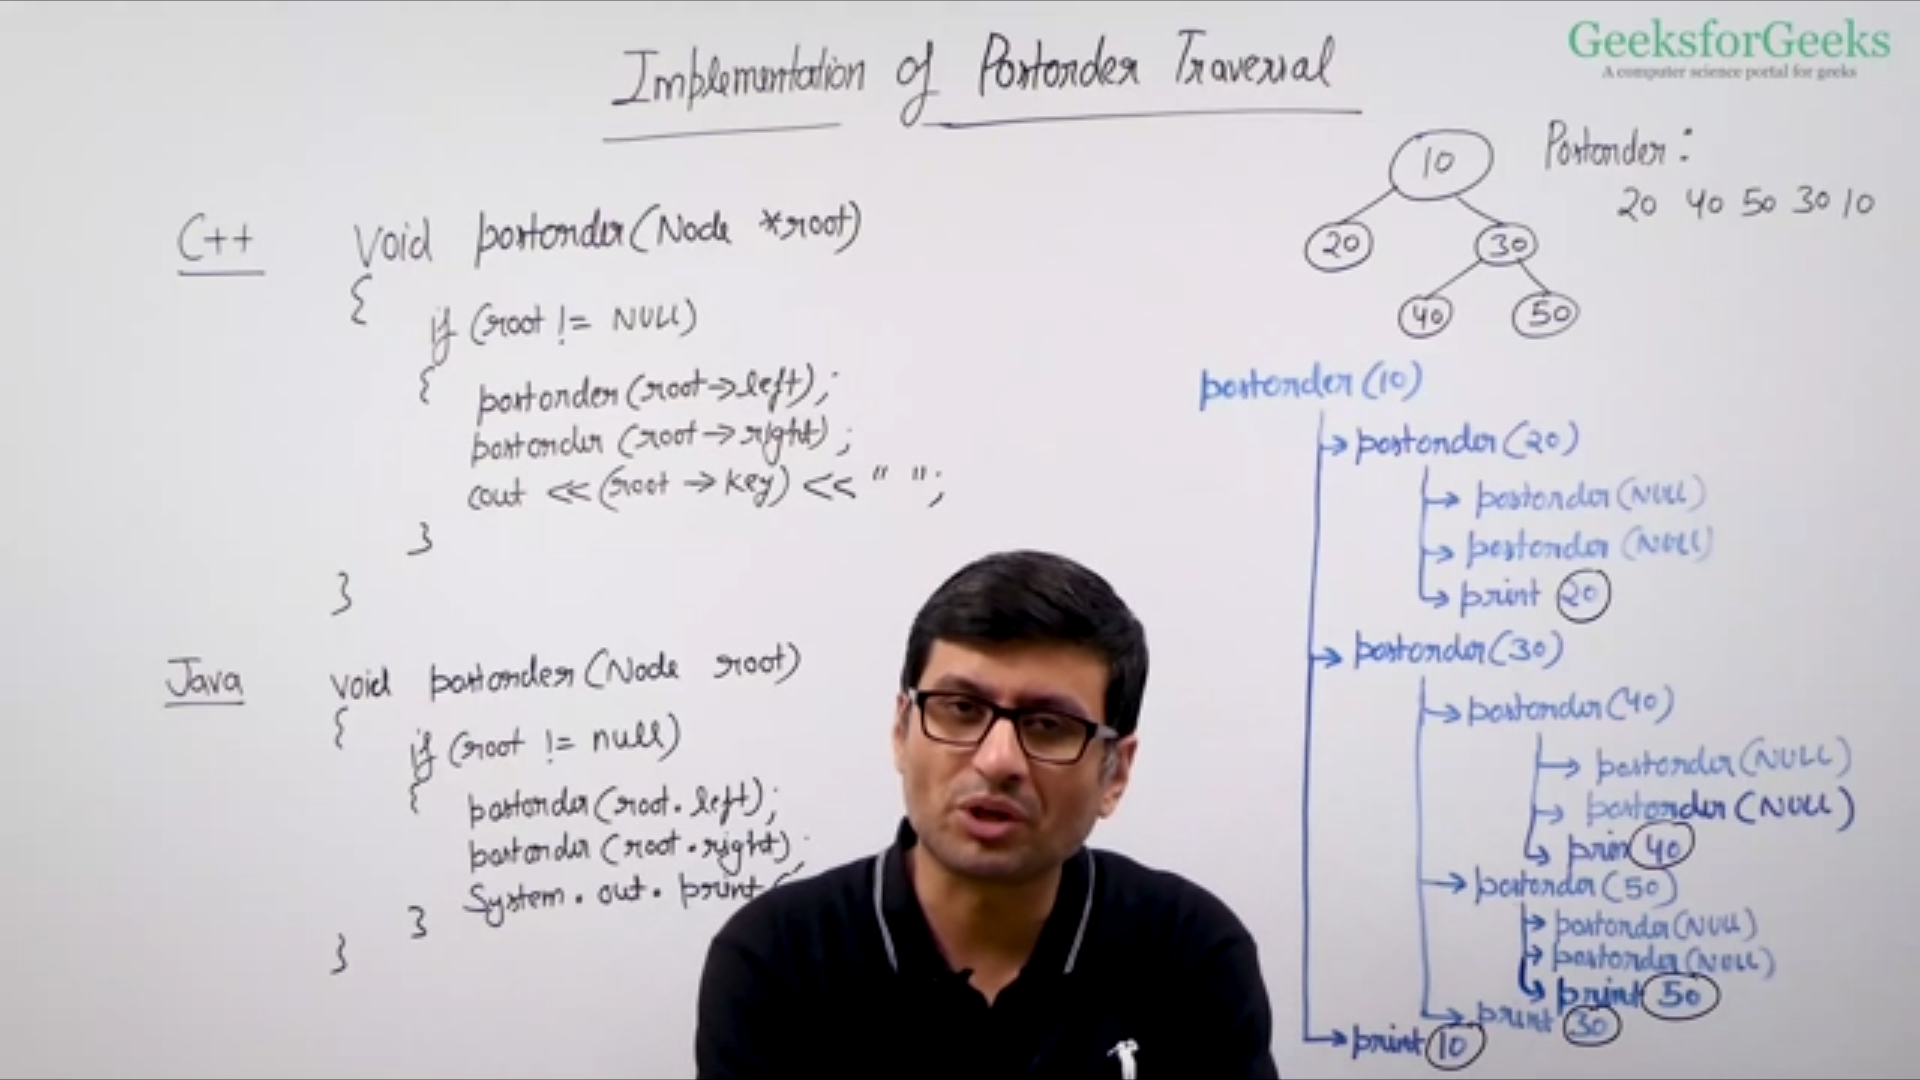 GeeksforGeeks
A computer science portal for geeks
Implementation of Postorder Traversal
C++
void postorder(Node *root)
{
if (root != NULL)
{ postorder(root->left);
postorder (root->right);
cout << (root->key) << " ";
}
}
Java
void postorder(Node root)
{
if (root != null)
{ postorder(root.left);
postorder (root.right);
System.out.print(
}
}
10
20 30
40 50
Postorder:
20 40 50 30 10
postorder(10)
postorder(20)
postorder(NULL)
postorder (NULL)
print 20
postorder(30)
postorder(40)
postorder(NULL)
postorder(NULL)
print 40
postorder(50)
postorder(NULL)
postorder(NULL)
print 50
print 30
print 10